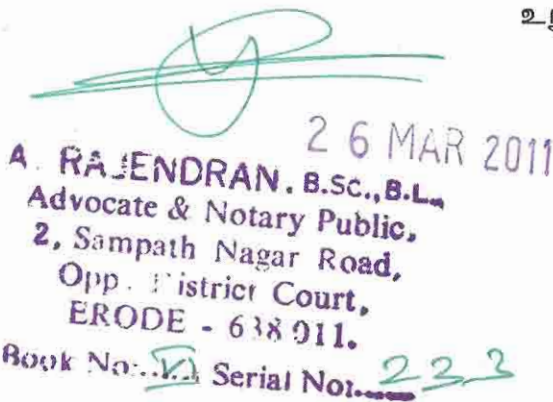 26 MAR 2011
A. RAJENDRAN. B.SC., B.L.,
Advocate & Notary Public,
2, Sampath Nagar Road,
Opp. District Court,
ERODE - 638 011.
Book No:..VI.. Serial No:....223